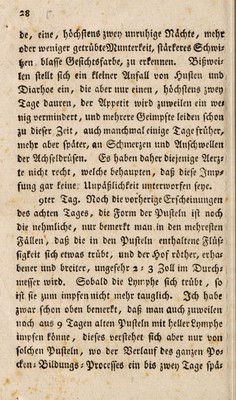 28
de, eine, höchstens zwey unruhige Nächte, mehr
oder weniger getrübte Munterkeit, stärkeres Schwi-
tzen, blasse Gesichtsfarbe, zu erkennen. Bißwei-
len stellt sich ein kleiner Anfall von Husten und
Diarhoe ein, die aber nur einen, höchstens zwey
Tage dauren, der Appetit wird zuweilen ein we-
nig vermindert, und mehrere Geimpfte leiden schon
zu dieser Zeit, auch manchmal einige Tage früher,
mehr aber später, an Schmerzen und Anschwellen
der Achseldrüsen. Es haben daher diejenige Aerz-
te nicht recht, welche behaupten, daß diese Imp-
fung gar keine Unpäßlichkeit unterworfen seye.
9ter Tag. Noch die vorherige Erscheinungen
des achten Tages, die Form der Pusteln ist noch
die nehmliche, nur bemerkt man in den mehresten
Fällen, daß die in den Pusteln enthaltene Flüs-
sigkeit sich etwas trübt, und der Hof röther, erha-
bener und breiter, ungefehr 2-3 Zoll im Durch-
messer wird. Sobald die Lymphe sich trübt, so
ist sie zum impfen nicht mehr tauglich. Ich habe
zwar schon oben bemerkt, daß man auch zuweilen
noch aus 9 Tagen alten Pusteln mit heller Lymphe
impfen könne, dieses verstehet sich aber nur von
solchen Pusteln, wo der Verlauf des ganzen Po-
cken-Bildungs-Processes ein bis zwey Tage spä-